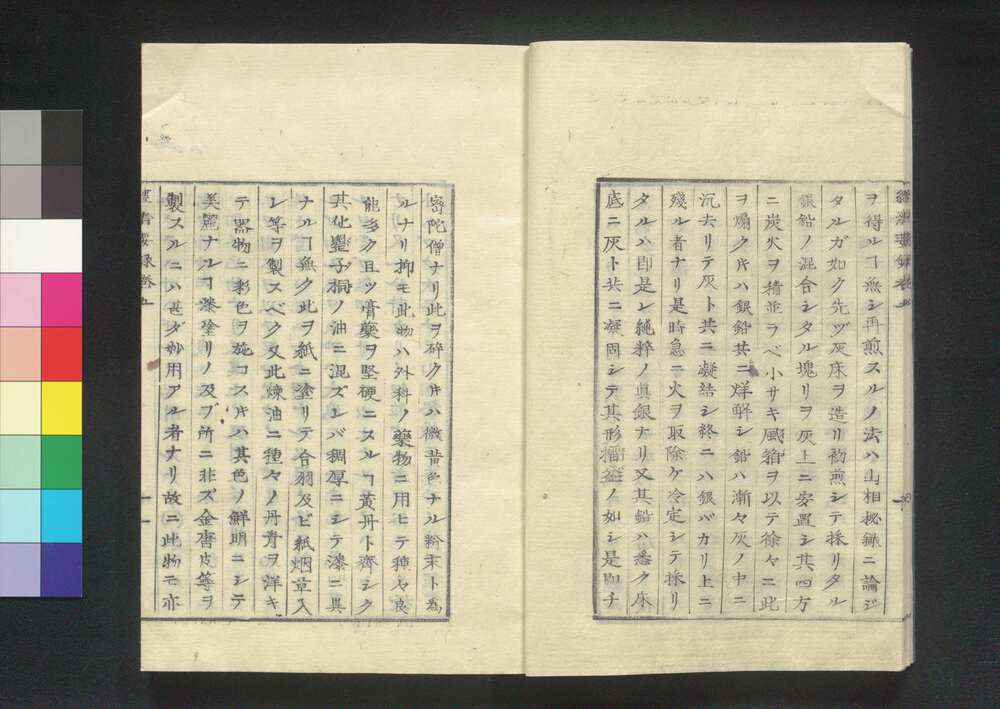 ヲ得ルヿ無シ再煎スルノ法ハ山相秘録ニ論ジ
タルガ如ク先ヅ灰床ヲ造リ初煎シテ採リタル
銀鉛ノ混合シタル塊リヲ灰上ニ安置シ其四方
ニ炭火ヲ積並ラベ小サキ風箱ヲ以テ徐々ニ此
ヲ煽クキハ銀鉛共ニ烊解シ鉛ハ漸々灰ノ中ニ
沉去リテ灰ト共ニ凝結シ終ニハ銀バカリ上ニ
殘ル者ナリ是時急ニ火ヲ取除ケ冷定シテ採リ
タルハ即是レ純粹ノ眞銀ナリ又其鉛ハ悉ク床
底ニ灰ト共ニ凝固シテ其形擂盆ノ如シ是即チ
密陀僧ナリ此ヲ碎クキハ微黄色ナル粉末ト為
ルナリ抑モ此物ハ外科ノ藥物ニ用ヒテ種々良
能多ク且ツ膏藥ヲ堅硬ニスルヿ黄丹ト齊シク
其他罌子桐ノ油ニ混ズレバ稠厚ニシテ漆ニ異
ナルヿ無ク此ヲ紙ニ塗リテ合羽及ビ紙烟草入
レ等ヲ製スベク又此煉油ニ種々ノ丹青ヲ洋キ
テ器物ニ彩色ヲ施コスキハ其色ノ鮮明ニシテ
美麗ナルヿ漆塗リノ及ブ所ニ非ズ金唐皮等ヲ
製スルニハ甚ダ妙用アル者ナリ故ニ此物モ亦